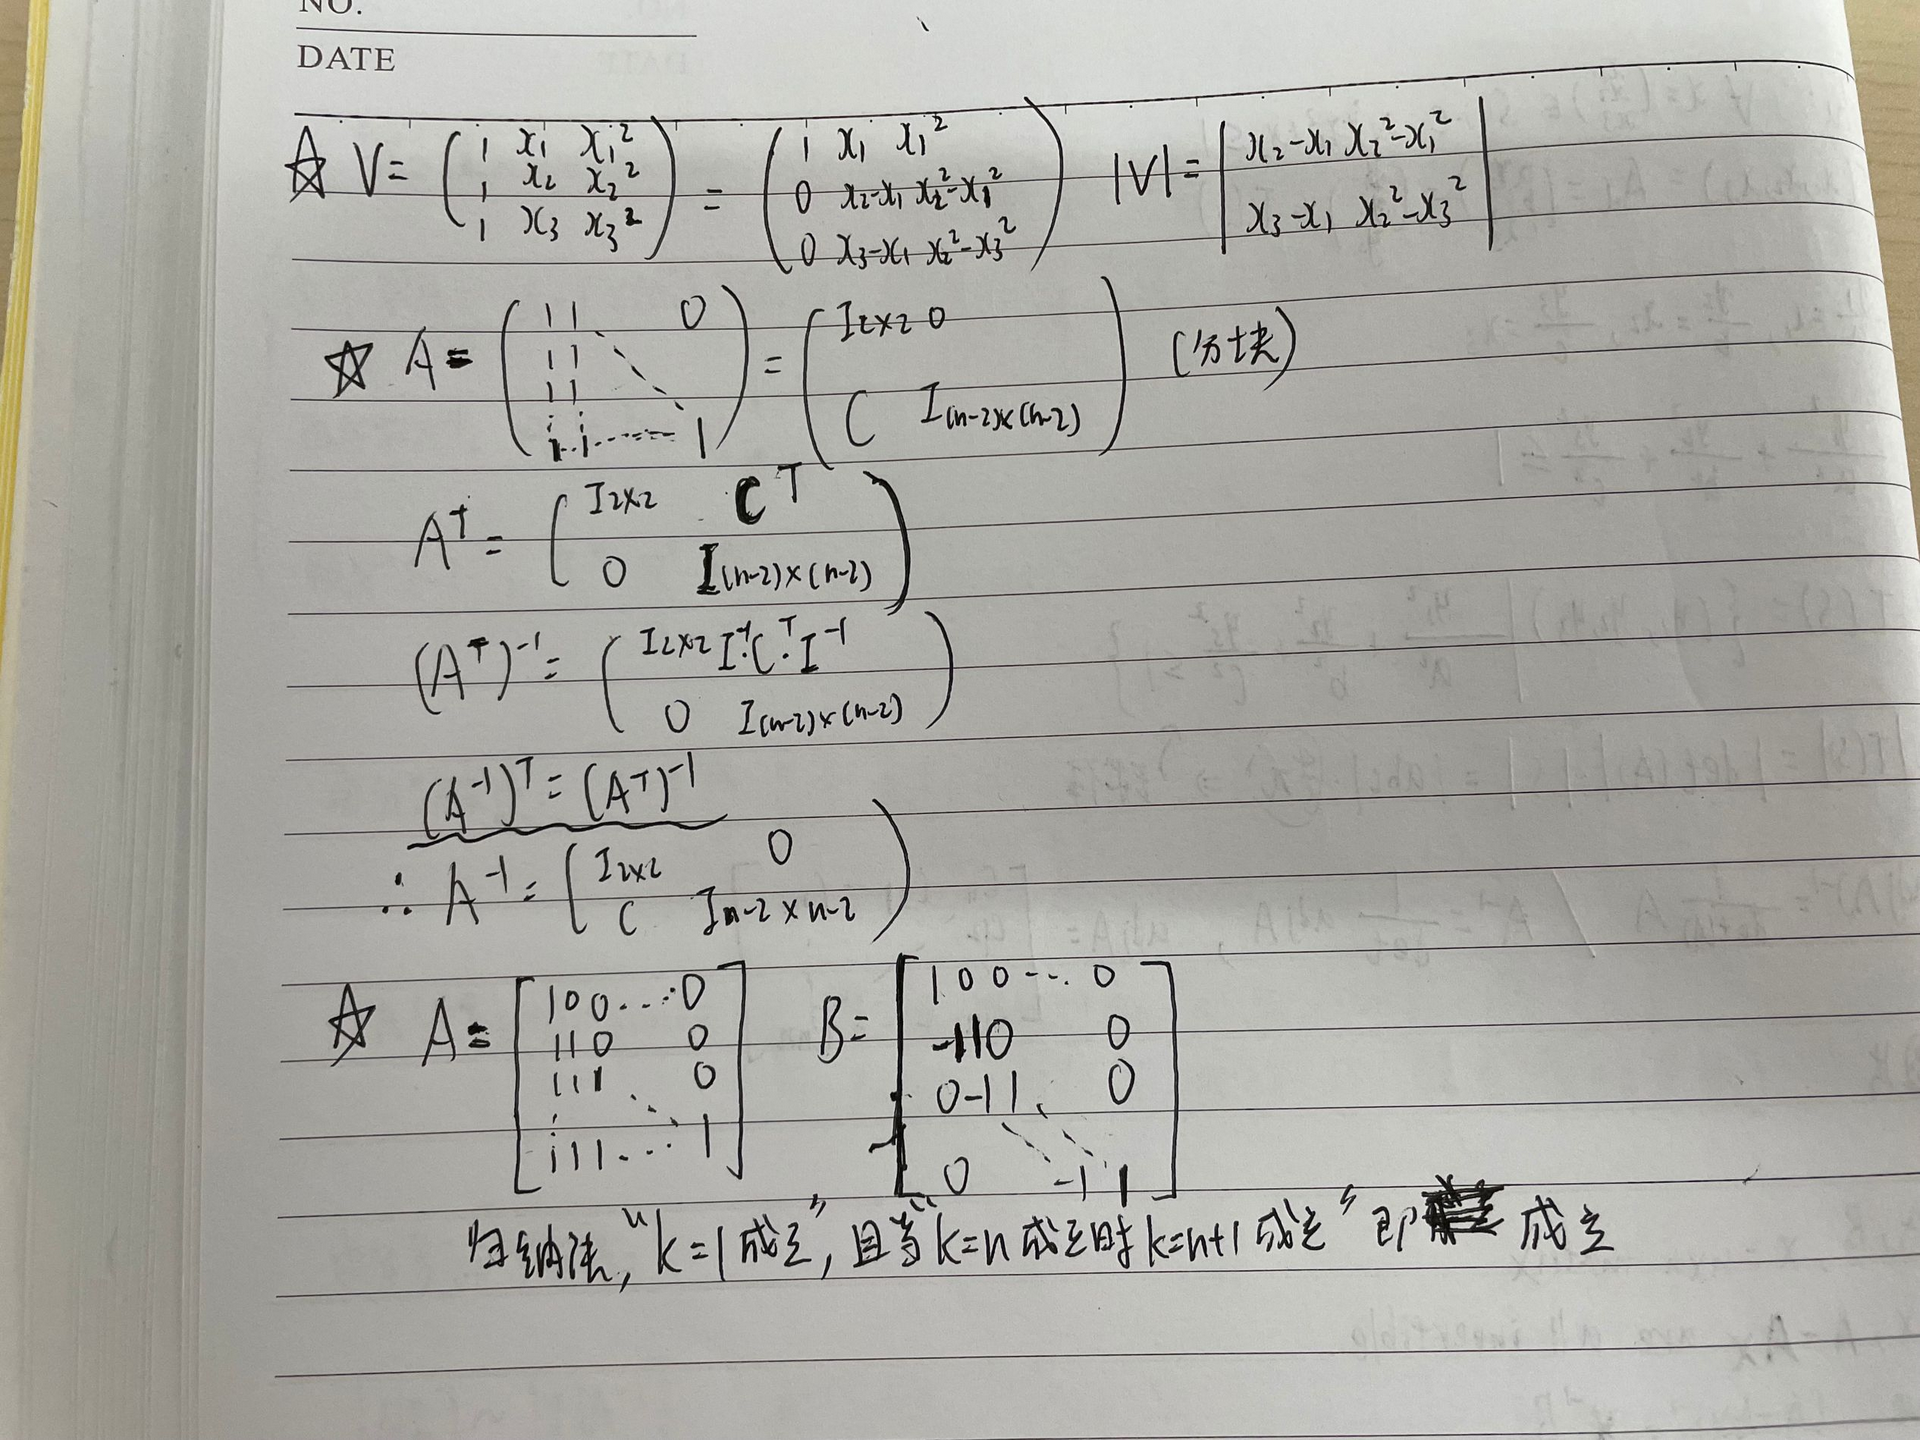 NO.
DATE
☆ V = ( 1 x₁ x₁² ; 1 x₂ x₂² ; 1 x₃ x₃² ) = ( 1 x₁ x₁² ; 0 x₂-x₁ x₂²-x₁² ; 0 x₃-x₁ x₂²-x₃² ) |V| = | x₂-x₁ x₂²-x₁² ; x₃-x₁ x₂²-x₃² |
☆ A = ( 1 1 0 ; 1 1 ⋱ ; 1 1 ; ⋮ ⋮ ; 1 1 ⋯ 1 ) = ( I₂ₓ₂ 0 ; C I₍ₙ₋₂₎ₓ₍ₙ₋₂₎ ) (分块)
Aᵀ = ( I₂ₓ₂ Cᵀ ; 0 I₍ₙ₋₂₎ₓ₍ₙ₋₂₎ )
(Aᵀ)⁻¹ = ( I₂ₓ₂ I⁻¹·Cᵀ·I⁻¹ ; 0 I₍ₙ₋₂₎ₓ₍ₙ₋₂₎ )
(A⁻¹)ᵀ = (Aᵀ)⁻¹
∴ A⁻¹ = ( I₂ₓ₂ 0 ; C Iₙ₋₂ₓₙ₋₂ )
☆ A = [ 1 0 0 ⋯ 0 ; 1 1 0 0 ; 1 1 1 0 ; ⋮ ⋱ ; 1 1 1 ⋯ 1 ] B = [ 1 0 0 ⋯ 0 ; -1 1 0 0 ; 0 -1 1 0 ; ⋱ ⋱ ; 0 -1 1 ]
归纳法, "k=1成立", 且当"k=n成立时k=n+1成立" 即 成立